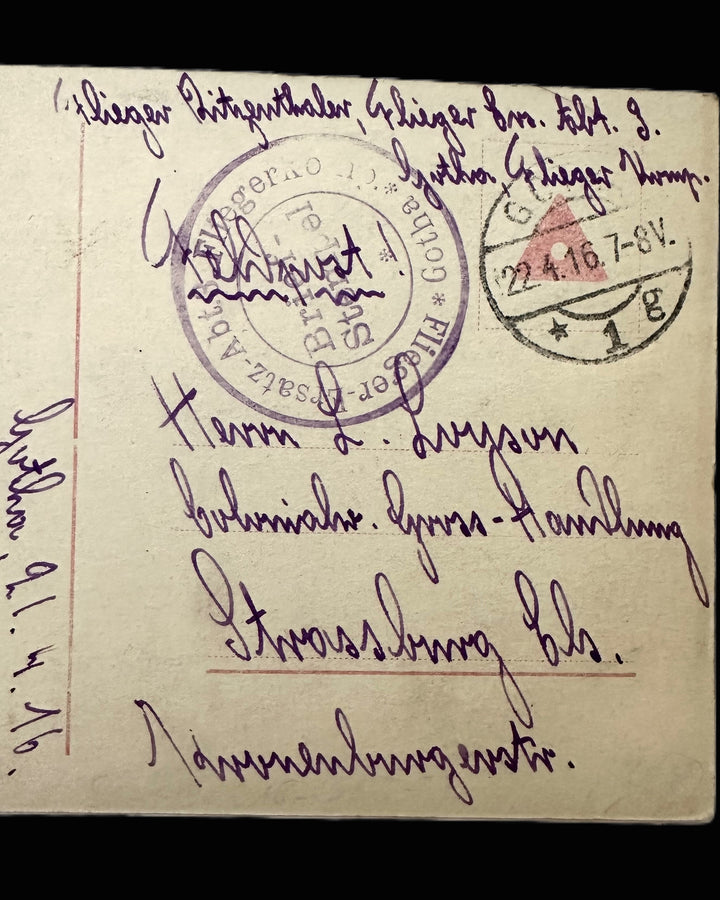 Flieger Flieger Ers. Abt. 3.
Gotha, Flieger Komp.
GOTHA
22.4.16.7-8V.
* 1 g
Flieger-Ersatz-Abt. 3 * Gotha *
Brief-
Stempel
Feldpost!
Herrn L.
Colonialw. Gross-Handlung
Strassburg Els.
Kronenburgerstr.
Gotha, 21.4.16.